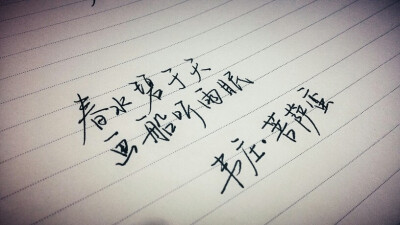 春水碧于天
画船听雨眠
韦庄·菩萨蛮